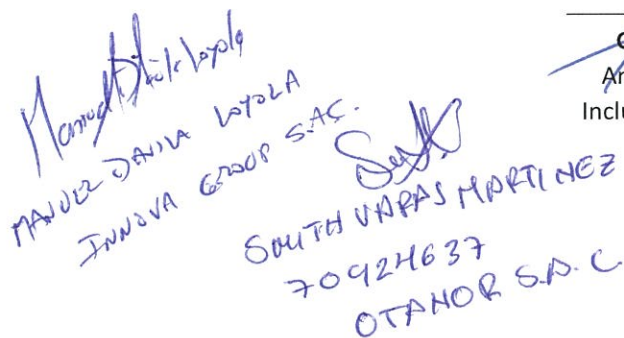 Manuel Dávila Loyola
MANUEL DAVILA LOYOLA
INNOVA GROUP S.A.C.
SOUTH VARAS MARTINEZ
70424637
OTANOR S.A.C
Inclu